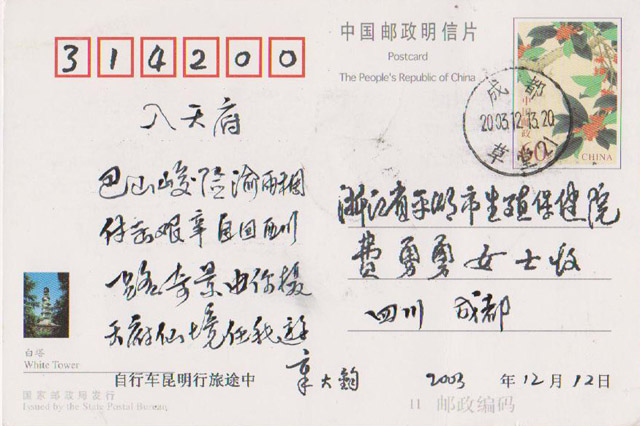 314200
中国邮政明信片
Postcard
The People's Republic of China
中国邮政
60分
CHINA
成都
2003.12.13.20
草堂
入天府
巴山峻险渝雨稠
艰辛自
一路奇景由你摄
天府仙境任我游
章大
自行车昆明行旅途中
浙江省平湖市生殖保健院
费勇勇女士收
四川 成都
2003 年12月12日
白塔
White Tower
国家邮政局发行
Issued by the State Postal Bureau
邮政编码